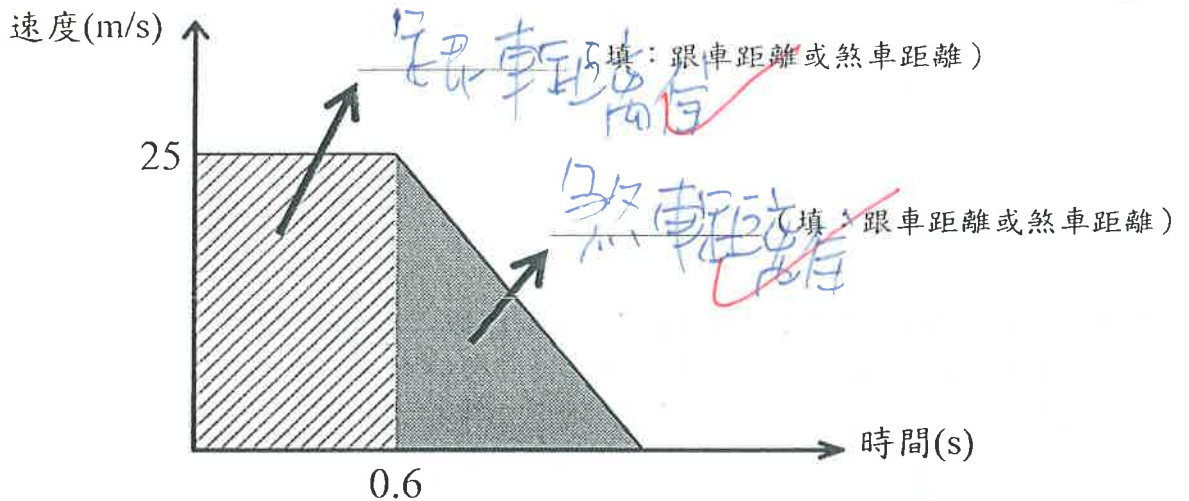 速度(m/s)
跟車距離（填：跟車距離或煞車距離）
25
煞車距離（填：跟車距離或煞車距離）
時間(s)
0.6